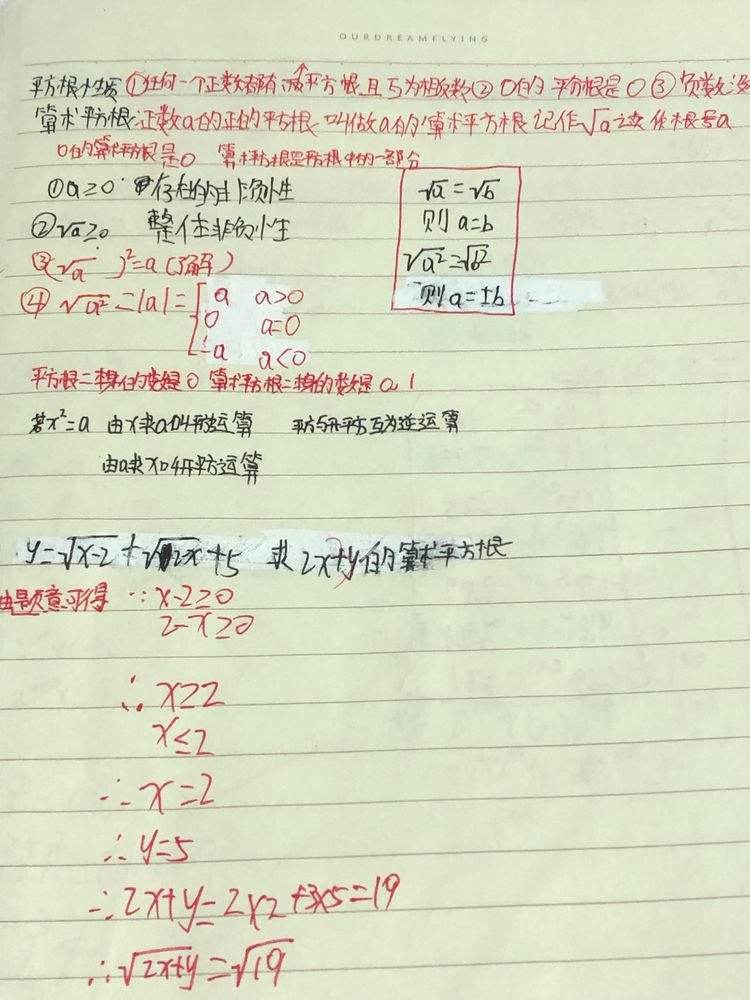 OURDREAMFLYING
平方根性质 ①任何一个正数都有 平方根 且互为相反数 ② 0的平方根是0 ③ 负数没
算术平方根:正数a的正的平方根 叫做a的算术平方根 记作√a 读作根号a
0的算术平方根是0 算术平方根是平方根中的一部分
① a≥0 存在的非负性
② √a≥0 整体非负性
③ (√a)²=a (了解)
④ √a²=|a|= a a>0
0 a=0
-a a<0
√a=√b
则 a=b
√a²=√b²
则 a=±b
平方根=本身的数是0 算术平方根=本身的数是0,1
若x²=a 由x求a叫平方运算 平方与开平方互为逆运算
由a求x叫开平方运算
y=√x-2+√2-x+5 求2x+y的算术平方根
由题意可得 ∵x-2≥0
2-x≥0
∴x≥2
x≤2
∴x=2
∴y=5
∴2x+y=2×2+3×5=19
∴√2x+y=√19